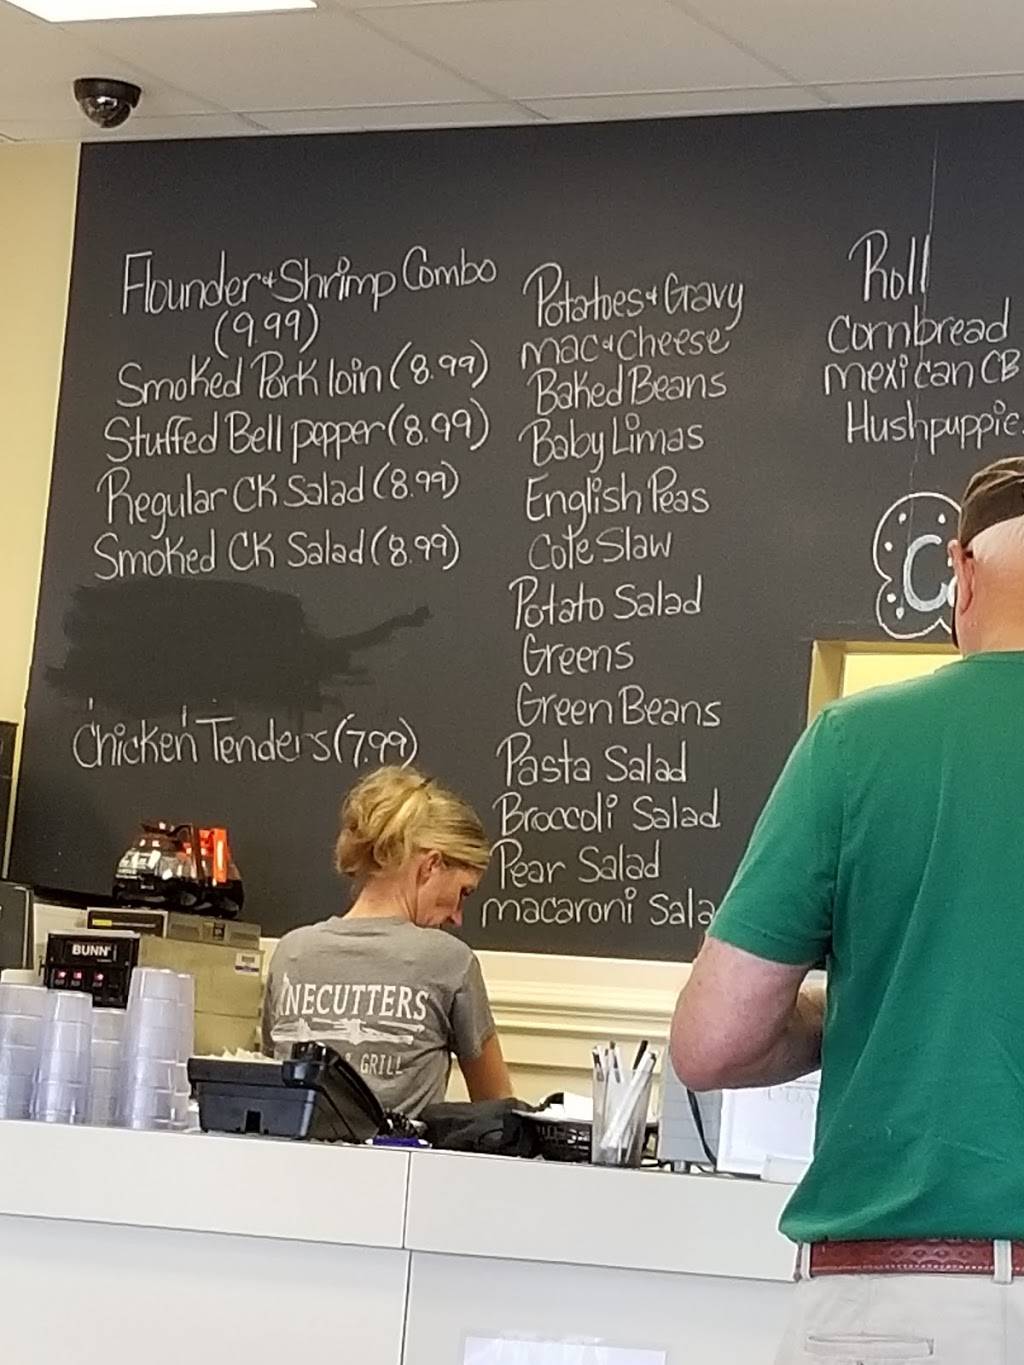 Flounder & Shrimp Combo
(9.99)
Smoked Pork loin (8.99)
Stuffed Bell pepper (8.99)
Regular CK Salad (8.99)
Smoked CK Salad (8.99)
Chicken Tenders (7.99)
Potatoes & Gravy
mac & Cheese
Baked Beans
Baby Limas
English Peas
Cole Slaw
Potato Salad
Greens
Green Beans
Pasta Salad
Broccoli Salad
Pear Salad
macaroni Sala
Roll
Cornbread
mexican CB
Hushpuppie
BUNN
NECUTTERS
GRILL